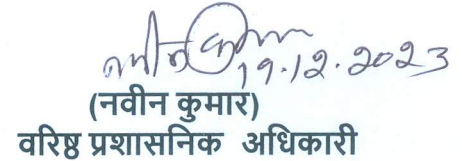 नवीन कुमार
19.12.2023
(नवीन कुमार)
वरिष्ठ प्रशासनिक अधिकारी